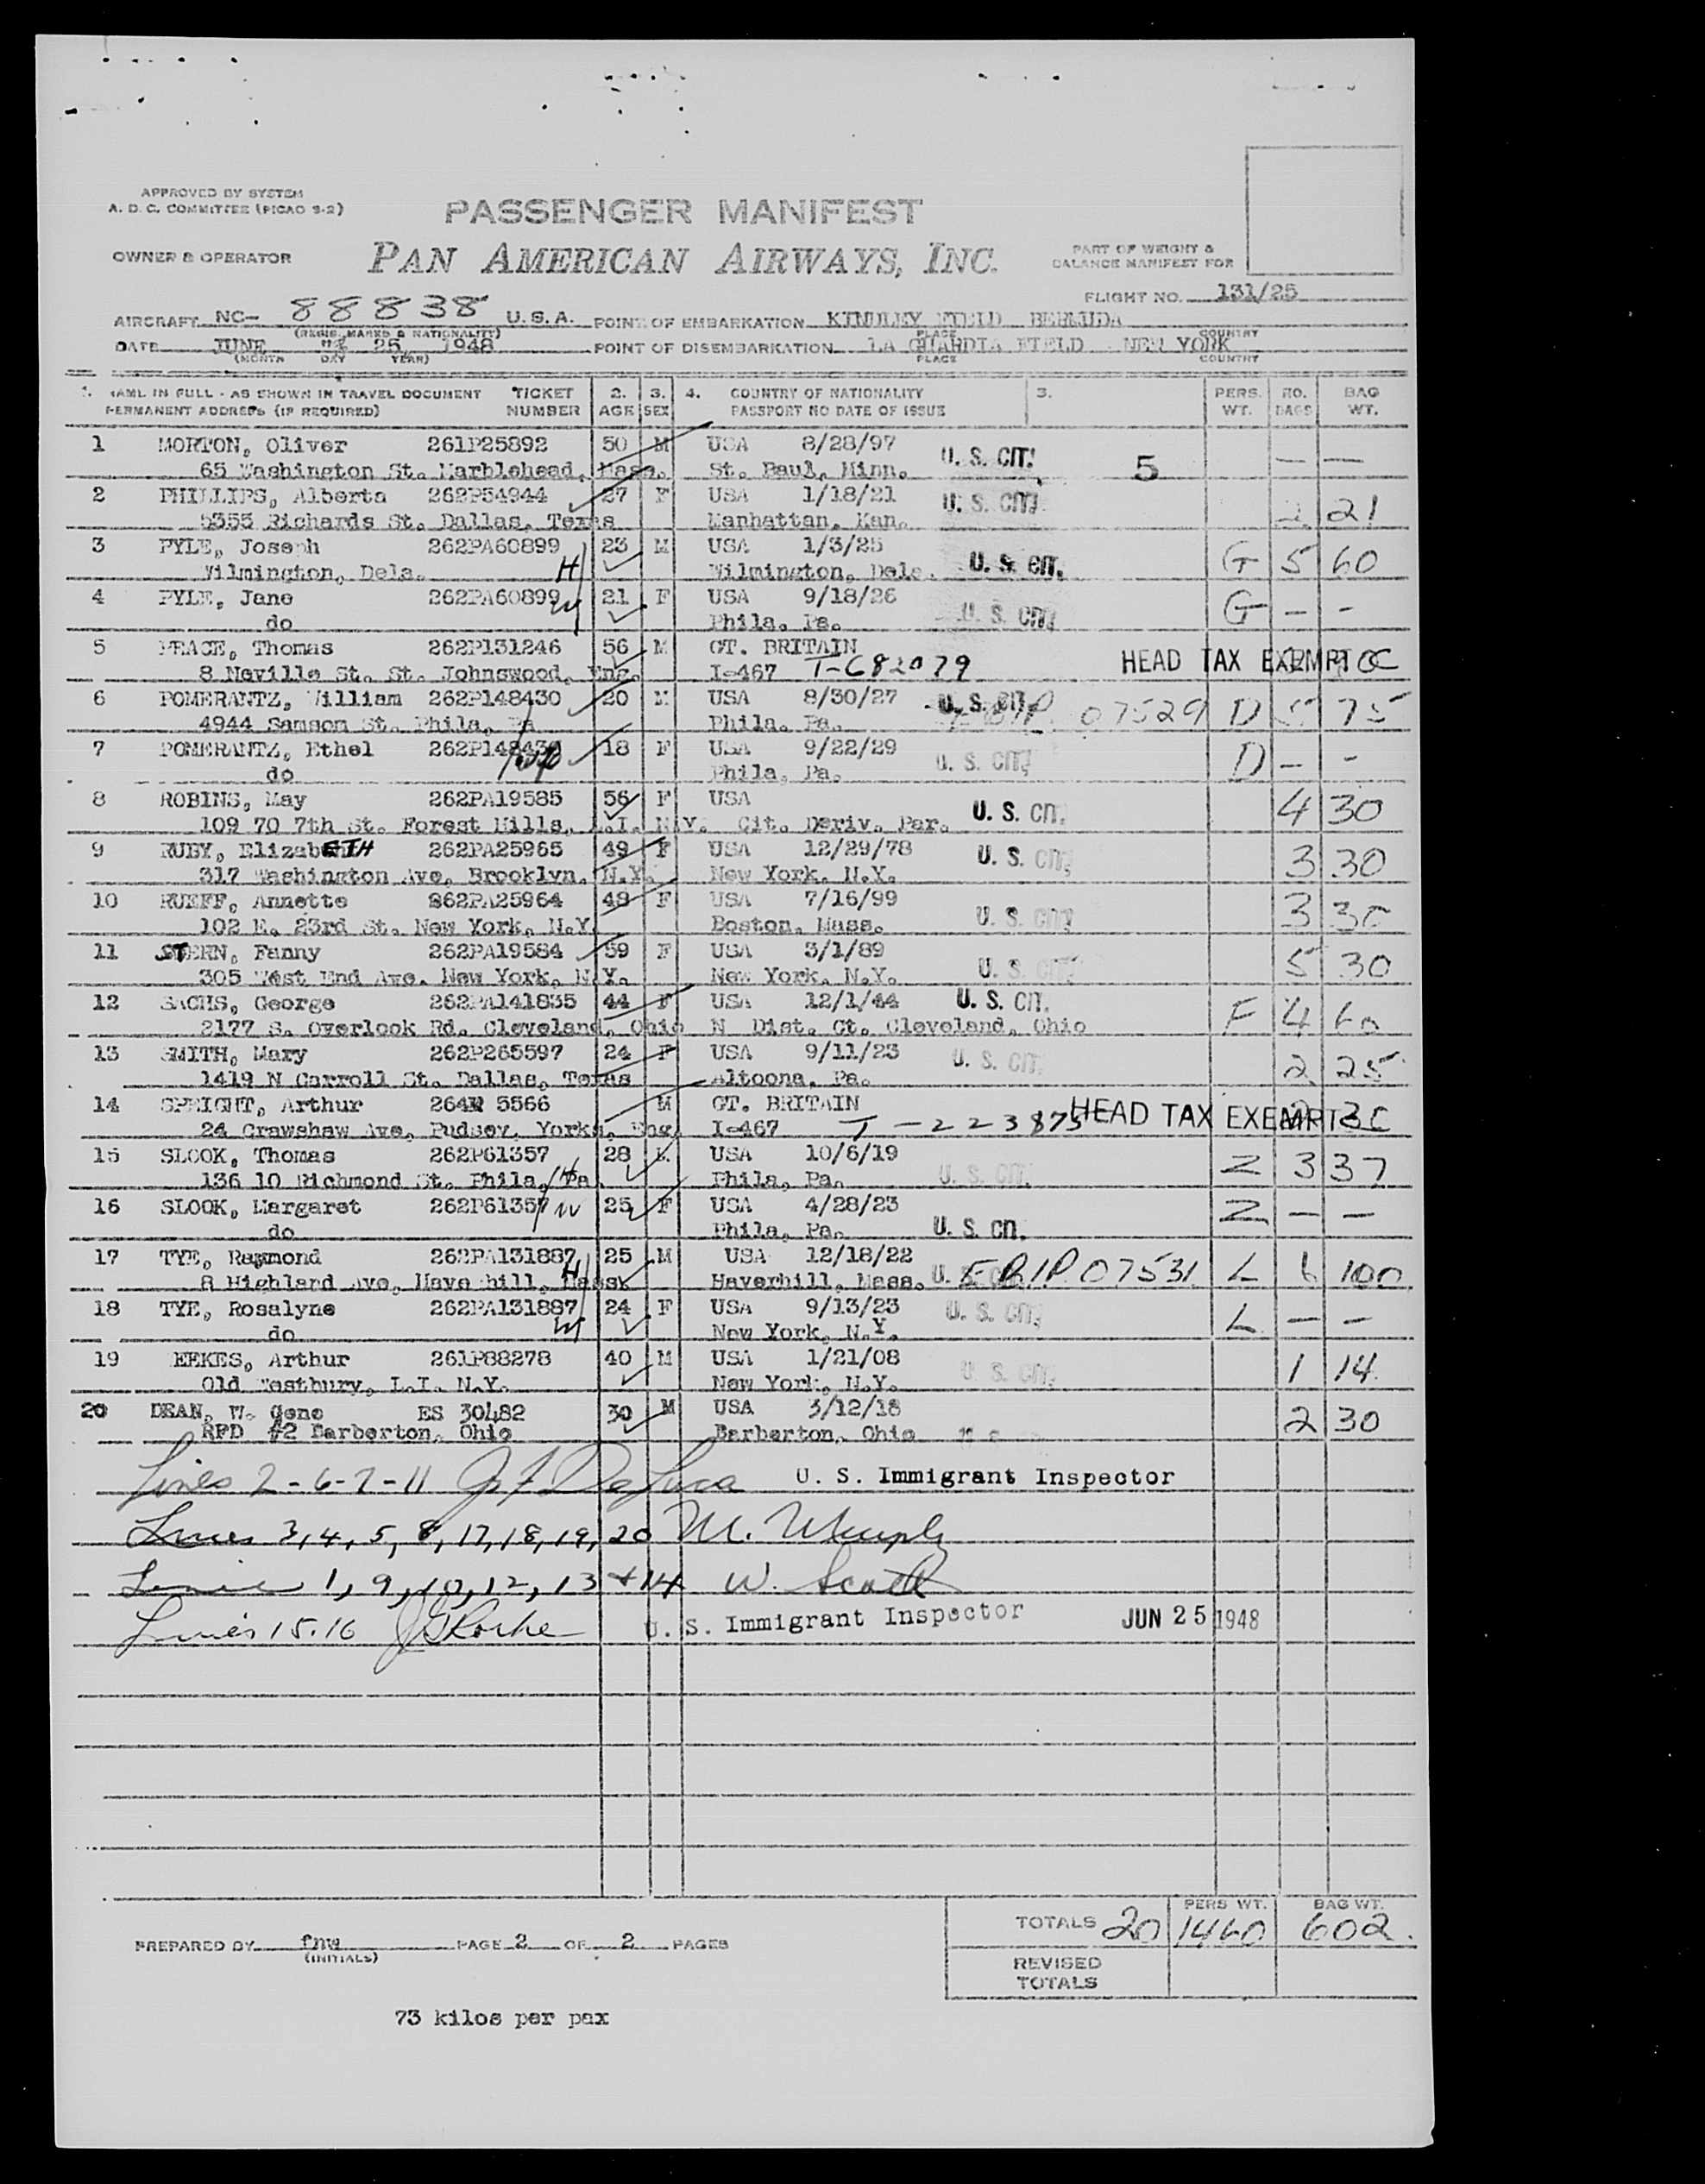 APPROVED BY SYSTEM
A. D. C. COMMITTEE (PICAO 9-2)
PASSENGER MANIFEST
OWNER & OPERATOR PAN AMERICAN AIRWAYS, INC.
PART OF WEIGHT &
BALANCE MANIFEST FOR
FLIGHT NO. 131/25
AIRCRAFT NC- 88838 U.S.A. POINT OF EMBARKATION KINDLEY FIELD BERMUDA
(REGIS. MARKS & NATIONALITY) PLACE COUNTRY
DATE JUNE 25 1948 POINT OF DISEMBARKATION LA GUARDIA FIELD NEW YORK
(MONTH DAY YEAR) PLACE COUNTRY
1. NAME IN FULL - AS SHOWN IN TRAVEL DOCUMENT TICKET 2. 3. 4. COUNTRY OF NATIONALITY 3. PERS. NO. BAG
PERMANENT ADDRESS (IF REQUIRED) NUMBER AGE SEX PASSPORT NO DATE OF ISSUE WT. BAGS WT.
1 MORTON, Oliver 261P25892 50 M USA 8/28/97 U. S. CIT. 5 — —
65 Washington St. Marblehead, Mass. St. Paul, Minn.
2 PHILLIPS, Alberta 262P54944 27 F USA 1/18/21 U. S. CIT. 2 21
5355 Richards St. Dallas, Texas Manhattan, Kan.
3 PYLE, Joseph 262PA60899 23 M USA 1/3/25 U. S. CIT. G 5 60
Wilmington, Dela. H Wilmington, Dela.
4 PYLE, Jane 262PA60899 W 21 F USA 9/18/26 U. S. CIT. G — -
do Phila. Pa.
5 PEACE, Thomas 262P131246 56 M GT. BRITAIN
8 Neville St. St. Johnswood, Eng. I-467 T-682079 HEAD TAX EXEMPT
6 POMERANTZ, William 262P148430 20 M USA 8/30/27 U. S. CIT. 07529 D 5 75
4944 Samsom St. Phila, Pa Phila. Pa.
7 POMERANTZ, Ethel 262P148430 18 F USA 9/22/29 U. S. CIT. D — -
do Phila, Pa.
8 ROBINS, May 262PA19585 56 F USA U. S. CIT. 4 30
109 70 7th St. Forest Hills, L.I. N.Y. Cit. Deriv. Par.
9 RUBY, ElizabETH 262PA25965 49 F USA 12/29/78 U. S. CIT. 3 30
317 Washington Ave, Brooklyn, N.Y. New York, N.Y.
10 RUEFF, Annette 262PA25964 48 F USA 7/16/99 U. S. CIT. 3 30
102 E. 23rd St. New York, N.Y. Boston, Mass.
11 STERN, Fanny 262PA19584 59 F USA 3/1/89 U. S. CIT. 5 30
305 West End Ave. New York, N.Y. New York, N.Y.
12 SACHS, George 262PA141835 44 F USA 12/1/44 U. S. CIT. F 4 60
2177 S. Overlook Rd. Cleveland, Ohio N Dist. Ct. Cleveland, Ohio
13 SMITH, Mary 262P265597 24 F USA 9/11/23 U. S. CIT. 2 25
1419 N Carroll St. Dallas, Texas Altoona, Pa.
14 SPEIGHT, Arthur 264N 5566 M GT. BRITAIN
24 Crawshaw Ave, Pudsey, Yorks, Eng. I-467 T-223875 HEAD TAX EXEMPT
15 SLOOK, Thomas 262P61357 28 M USA 10/6/19 U. S. CIT. Z 3 37
136 10 Richmond St. Phila, Pa H Phila, Pa.
16 SLOOK, Margaret 262P61357 W 25 F USA 4/28/23 Z — —
do Phila, Pa. U. S. CIT.
17 TYE, Raymond 262PA131887 25 M USA 12/18/22
8 Highland Ave, Haverhill, Mass. H Haverhill, Mass. U. S. F.B.I.P. 07531 L 6 100
18 TYE, Rosalyne 262PA131887 24 F USA 9/13/23 U. S. CIT. L — -
do W New York, N.Y.
19 EEKES, Arthur 261P88278 40 M USA 1/21/08 U. S. CIT. 1 14
Old Westbury, L.I. N.Y. New York, N.Y.
20 DEAN, W. Gene ES 30482 30 M USA 3/12/18 2 30
RFD #2 Barberton, Ohio Barberton, Ohio
Lines 2-6-7-11 U. S. Immigrant Inspector
Lines 3, 4, 5, 8, 17, 18, 19, 20 M. Murphy
1, 9, 10, 12, 13 + 14 W. Scott
Lines 15.16 U. S. Immigrant Inspector JUN 25 1948
PERS WT. BAG WT.
TOTALS 20 1460 602.
PREPARED BY fnw PAGE 2 OF 2 PAGES
(INITIALS)
REVISED
TOTALS
73 kilos per pax